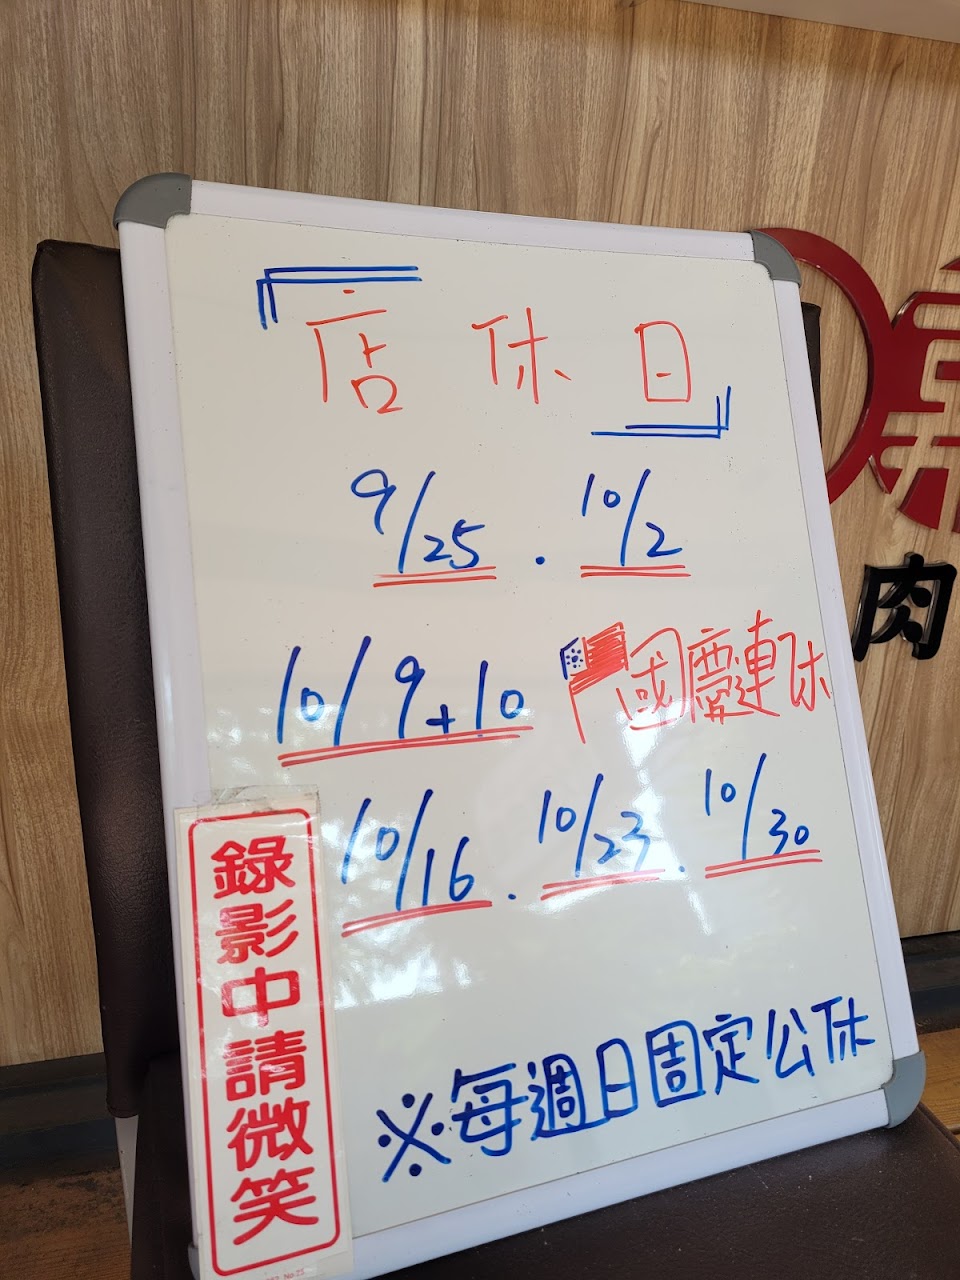 『店休日』
9/25 . 10/2
10/9+10 國慶連休
10/16 . 10/23 . 10/30
※每週日固定公休
錄影中請微笑
肉